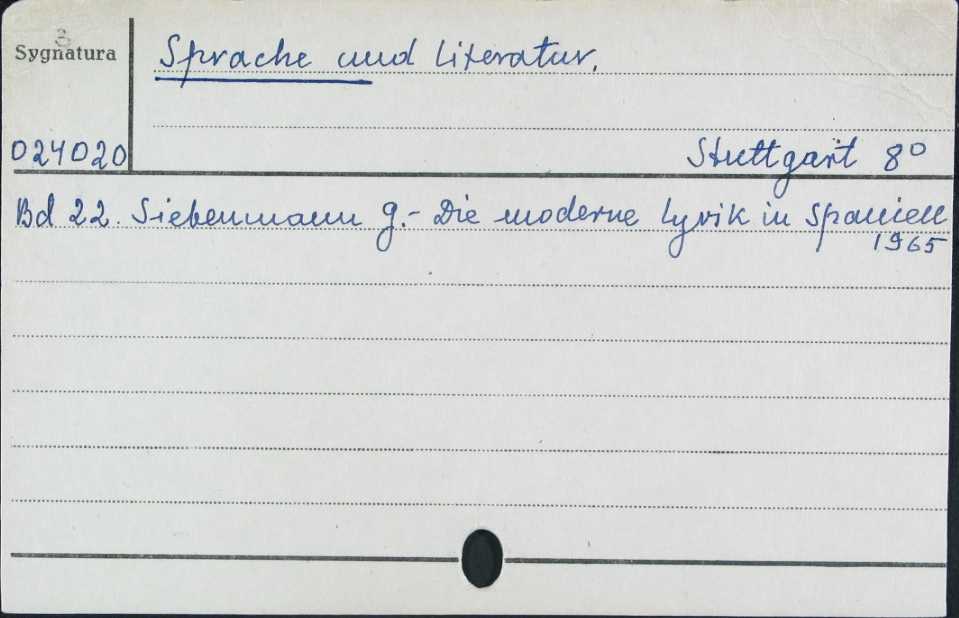 3
Sygnatura
Sprache und Literatur.
024020
Stuttgart 8°
Bd 22. Siebenmann G.- Die moderne Lyrik in Spanien
1965